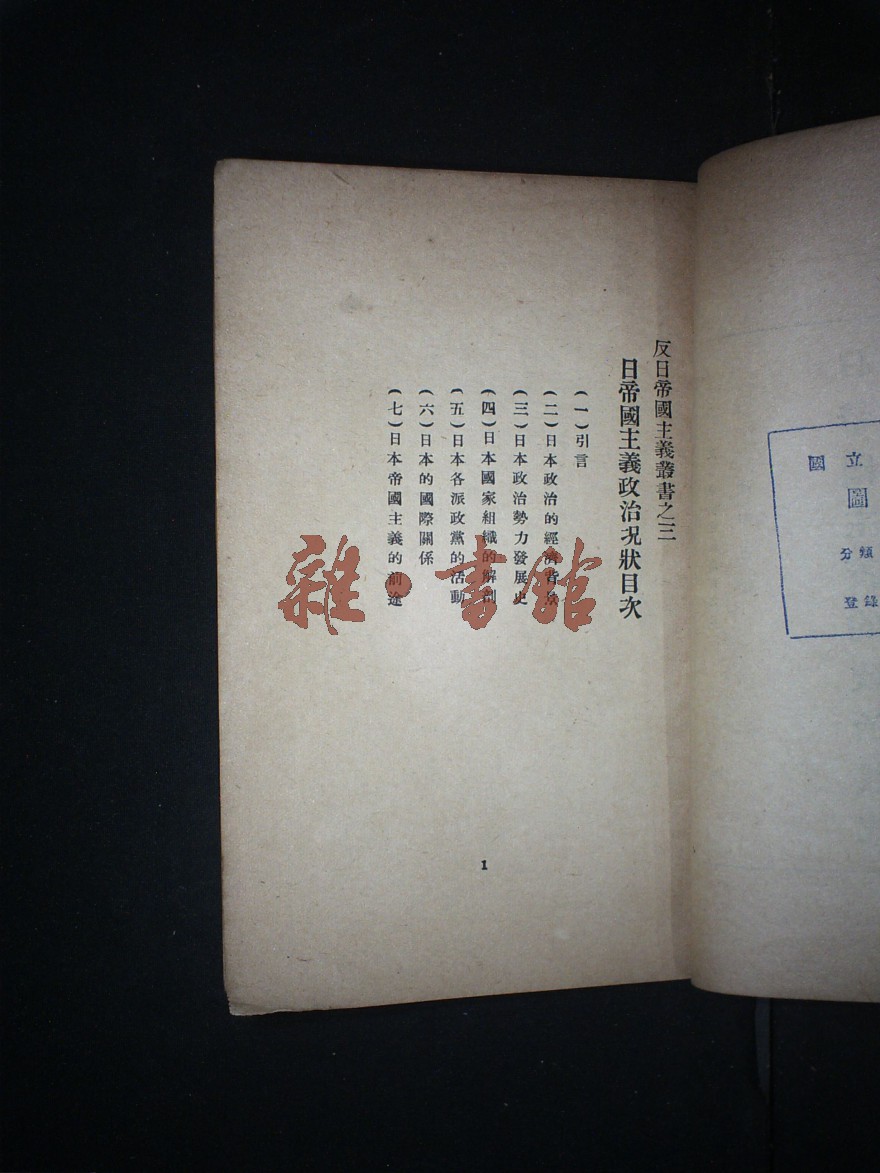 反日帝國主義叢書之三
日帝國主義政治況狀目次
(一)引言
(二)日本政治的經濟背景
(三)日本政治勢力發展史
(四)日本國家組織的解剖
(五)日本各派政黨的活動
(六)日本的國際關係
(七)日本帝國主義的前途
1
雜·書館
國立
圖
分類
登錄